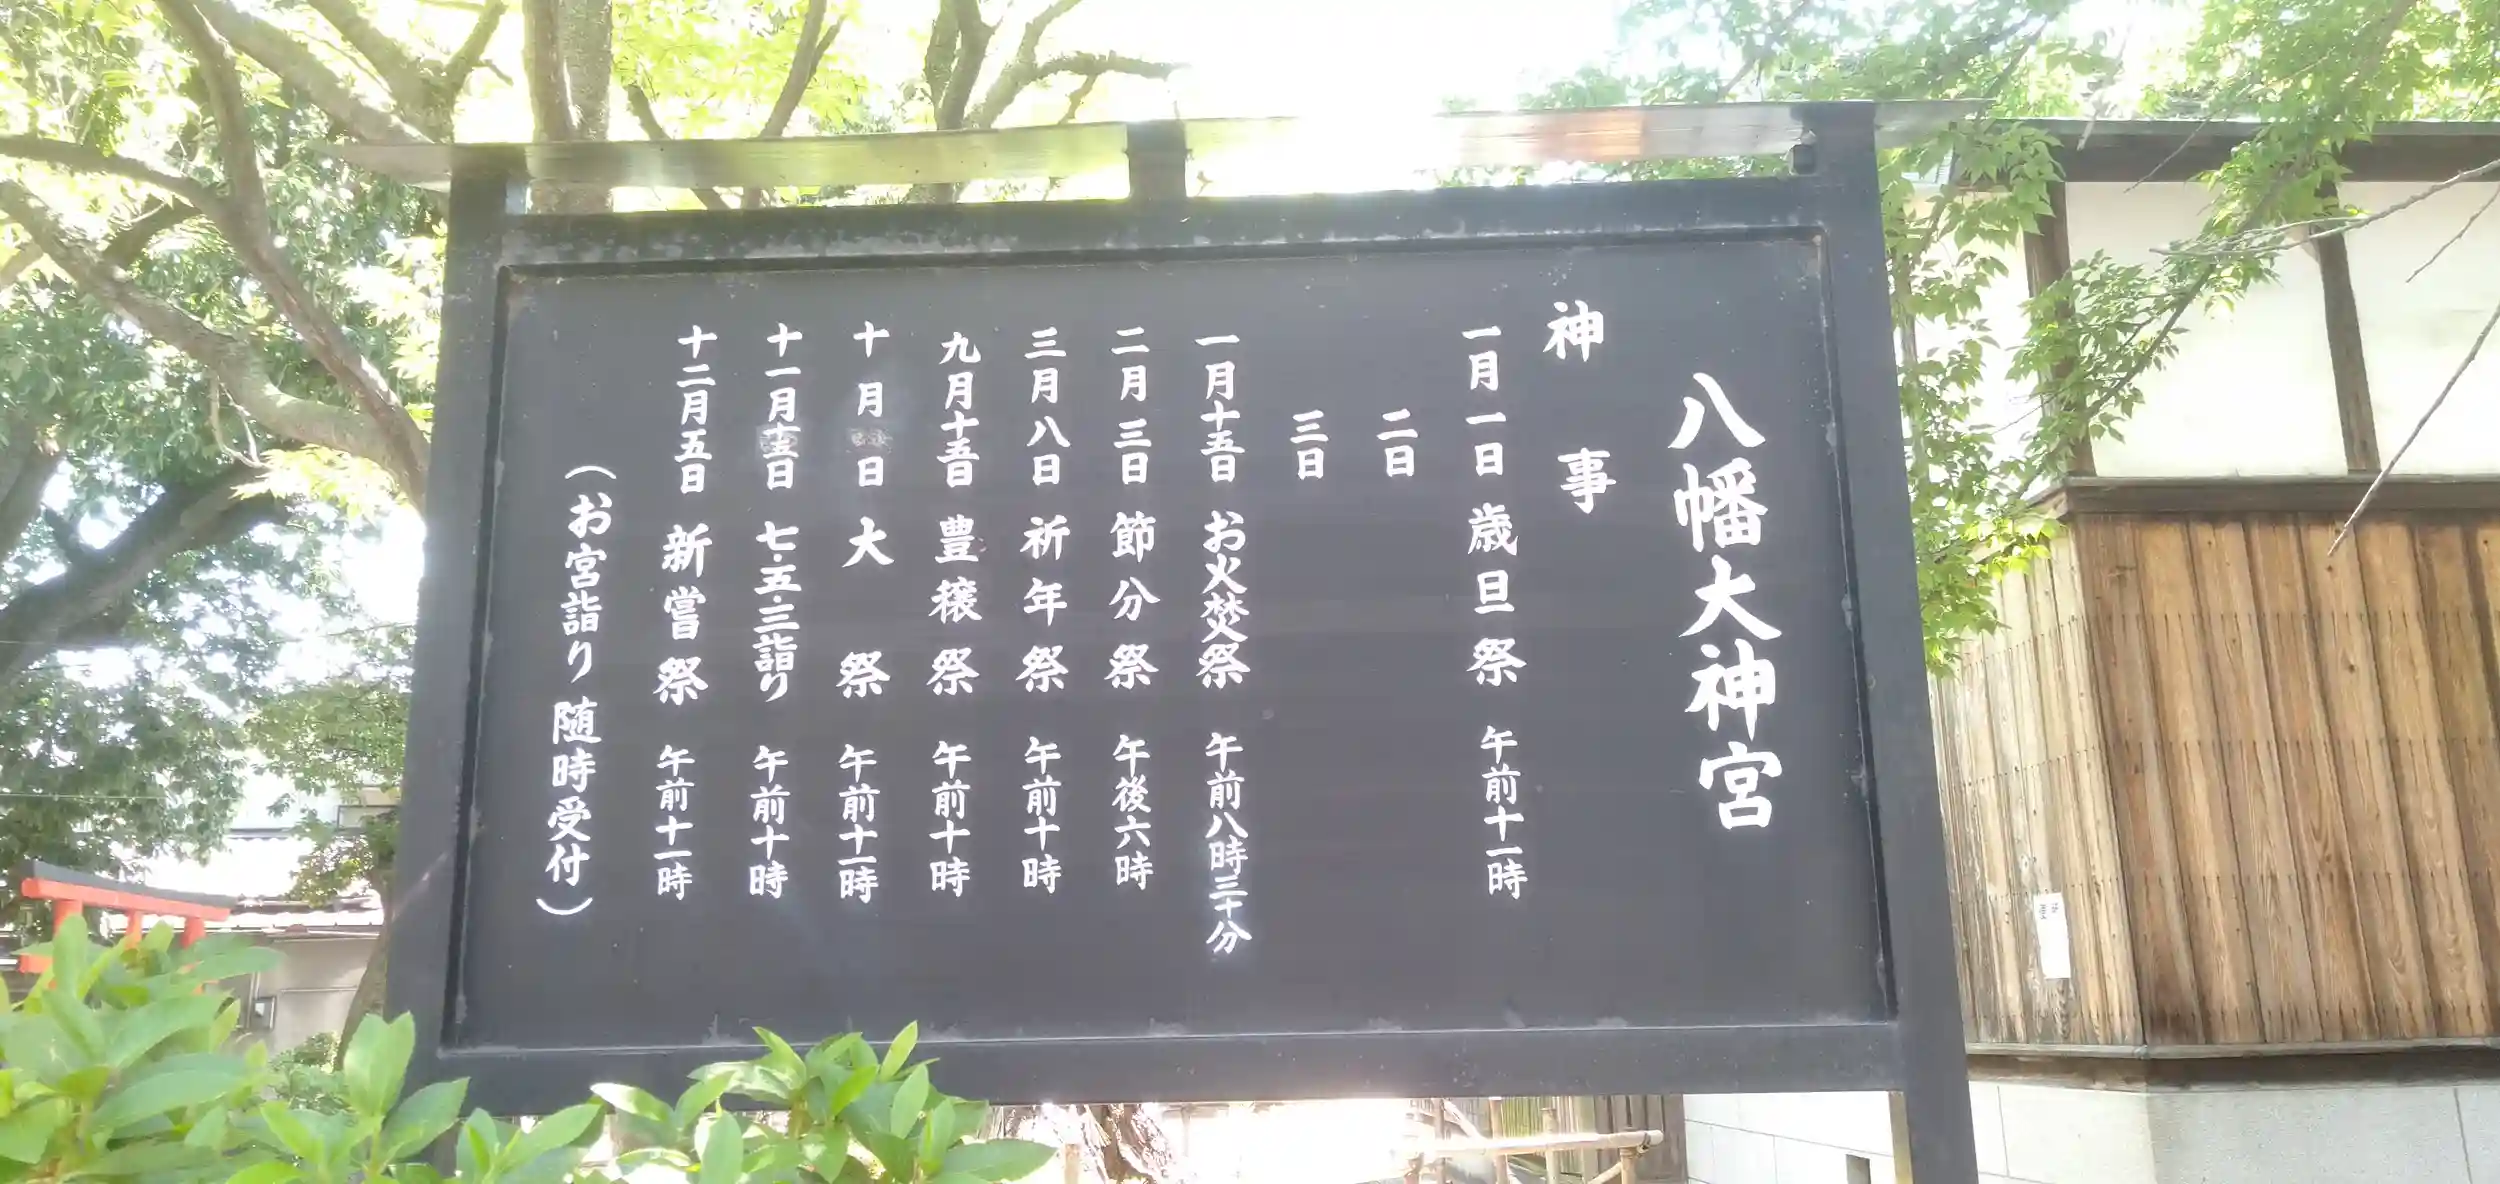 八幡大神宮
神事
一月一日 歳旦祭 午前十一時
二日
三日
一月十五日 お火焚祭 午前八時三十分
二月三日 節分祭 午後六時
三月八日 祈年祭 午前十時
九月十五日 豊穣祭 午前十時
十月 日 大祭 午前十一時
十一月十五日 七・五・三詣り 午前十時
十二月五日 新嘗祭 午前十一時
(お宮詣り 随時受付)